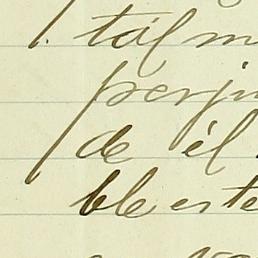 tal m
perju
de él.
ble este